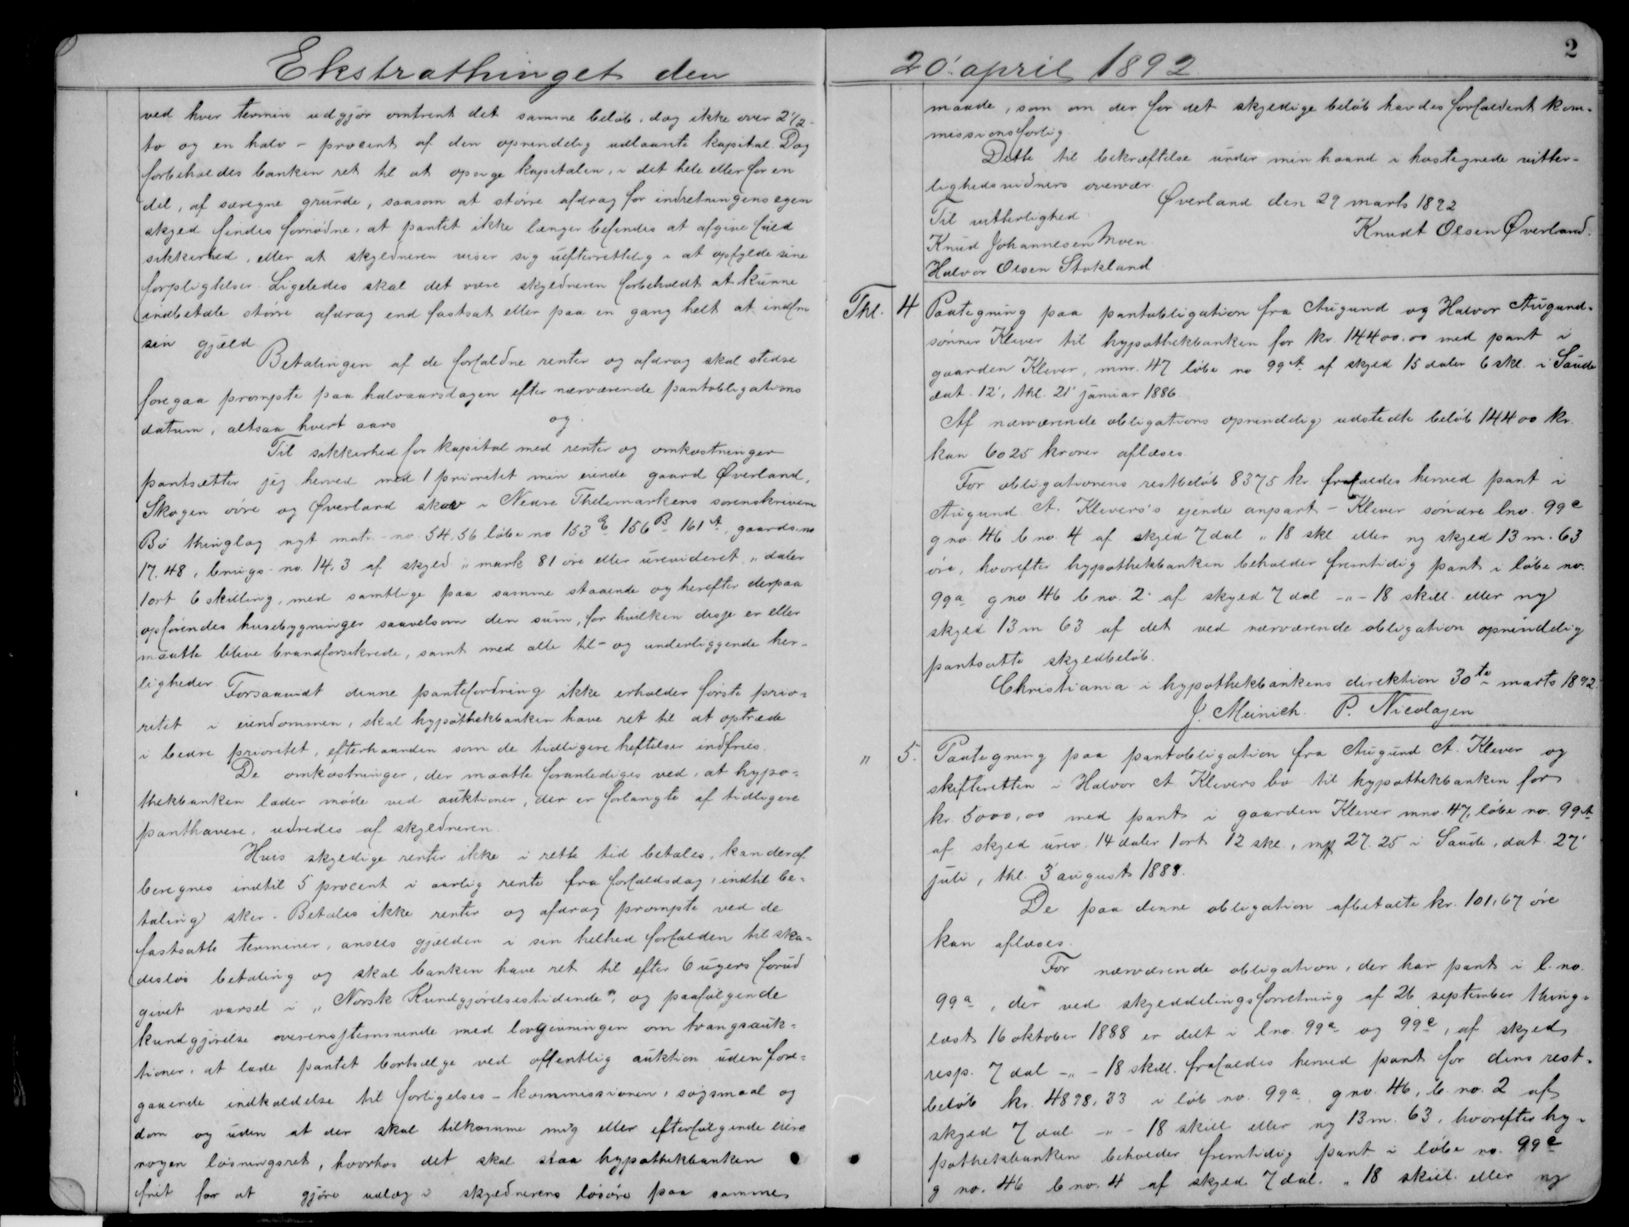 Ekstrathinget den
ved hver termin udgjør omtrent det samme beløb, dog ikke over 2 1/2 -
to og en halv - procent af den oprindelig udlaante kapital. Dog
forbeholdes banken ret til at opsige kapitalen, i det hele eller for en
del, af særegne grunde, saasom at større afdrag for indretningens egen
skyld findes fornødne, at pantet ikke længer befindes at afgive fuld
sikkerhed, eller at skyldneren viser sig uefterrettelig i at opfylde sine
forpligtelser. Ligeledes skal det være skyldneren forbeholdt at kunne
indbetale større afdrag end fastsat eller paa en gang helt at indfri
sin gjæld
Betalingen af de forfaldne renter og afdrag skal stedse
foregaa prompte paa halvaarsdagen efter nærværende pantobligations
datum, altsaa hvert aars og
Til sikkerhed for kapital med renter og omkostninger
pantsætter jeg herved med 1 prioritet min eiende gaard Øverland,
Skogen øvre og Øverland skov i Nedre Thelemarkens sorenskriveri
Bø thinglag nyt matr. no. 54. 56 løbe no 153 E 156 B 161 A, gaards no
17. 48, brugs no. 14, 3 af skyld " mark 81 øre eller urevideret " daler
1 ort 6 skilling, med samtlige paa samme staaende og herefter derpaa
opførendes husebygninger saavelsom den sum, for hvilken disse er eller
maatte blive brandforsikrede, samt med alle til- og underliggende her-
ligheder.
Forsaavidt denne pantefordring ikke erholder første prio-
ritet i eiendommen, skal hypothekbanken have ret til at optræde
i bedre prioritet, efterhaanden som de tidligere heftelser indfries.
De omkostninger, der maatte foranlediges ved, at hypo-
thekbanken lader møde ved auktioner, der er forlangte af tidligere
panthavere, udredes af skyldneren.
Hvis skyldige renter ikke i rette tid betales, kan deraf
beregnes indtil 5 procent i aarlig rente fra forfaldsdag, indtil be-
taling sker. Betales ikke renter og afdrag prompte ved de
fastsatte terminer, ansees gjælden i sin helhed forfalden til ska-
desløs betaling og skal banken have ret til efter 6 ugers forud
givet varsel i "Norsk Kundgjørelsestidende", og paafølgende
kundgjørelse overensstemmende med lovgivningen om tvangsauk-
tioner, at lade pantet bortsælge ved offentlig auktion uden fore-
gaaende indkaldelse til forligelses-kommissionen, søgsmaal og
dom og uden at der skal tilkomme mig eller efterfølgende eiere
nogen løsningsret, hvorhos det skal staa hypothekbanken
frit for at gjøre udlæg i skyldnerens løsøre paa samme
20' april 1892
2
maade, som om der for det skyldige beløb havdes forfaldent kom-
missionsforlig
Dette til bekræftelse under min haand i hostegnede vitter-
lighedsvidners overvær.
Øverland den 29 marts 1892
Til vitterlighed. Knudt Olsen Øverland.
Knud Johannesen Moen
Halvor Olsen Stokland
Thl. 4 Paategning paa pantobligation fra Augund og Halvor Augund-
sønner Klever til hypothekbanken for kr 14400.00 med pant i
gaarden Klever, mnr. 47 løbe no 99 A. af skyld 15 daler 6 skl. i Saude
dat. 12', thl. 21' januar 1886
Af nærværende obligations oprindelig udstedte beløb 14400 kr.
kan 6025 kroner aflæses.
For obligationens restbeløb 8375 kr frafaldes herved pant i
Augund A. Klevers's eiende anpart - Klever søndre lno. 99 c
g no. 46 b no. 4 af skyld 7 dal " 18 skl eller ny skyld 13 m. 63
øre, hvorefter hypothekbanken beholder fremtidig pant i løbe no.
99 a g no 46 b no. 2 af skyld 7 dal - " - 18 skill. eller ny
skyld 13 m 63 af det ved nærværende obligation oprindelig
pantsatte skyldbeløb.
Christiania i hypothekbankens direktion 30te marts 1892
J. Meinich. P. Nicolaysen
" 5. Paategning paa pantobligation fra Augund A. Klever og
skifteretten i Halvor A Klevers bo til hypothekbanken for
kr. 5000,00 med pant i gaarden Klever mno. 47, løbe no. 99 A
af skyld urev. 14 daler 1 ort 12 skl., 27. 25 i Saude, dat. 27'
juli, thl. 3' august 1888.
De paa denne obligation afbetalte kr. 101,67 øre
kan aflæses.
For nærværende obligation, der har pant i l. no.
99 a, der ved skylddelingsforretning af 26 september thing-
læst 16 oktober 1888 er delt i lno. 99 a og 99 c, af skyld
resp. 7 dal - " - 18 skill. frafaldes herved pant for dens rest-
beløb kr. 4898,33 i løb no. 99 a g no. 46, b. no. 2 af
skyld 7 dal - " - 18 skill eller ny 13 m. 63, hvorefter hy-
pothekbanken beholder fremtidig pant i løbe no. 99 c
g no. 46 b no. 4 af skyld 7 dal. " 18 skill. eller ny